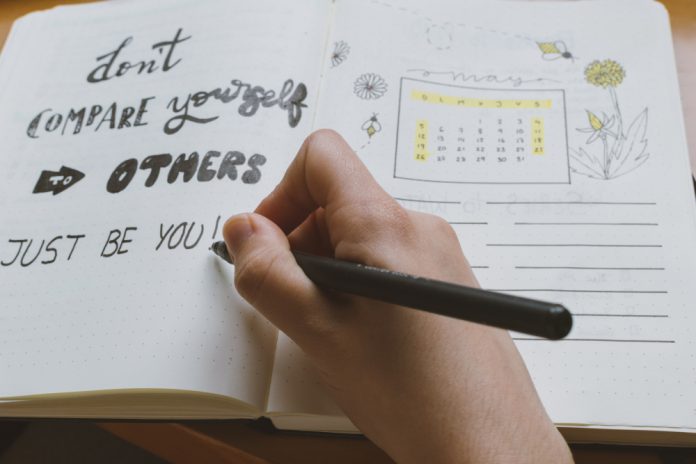 don't
COMPARE yourself
TO OTHERS
JUST BE YOU!
mayo
D L M X J V S
1 2 3 4
5 6 7 8 9 10 11
12 13 14 15 16 17 18
19 20 21 22 23 24 25
26 27 28 29 30 31